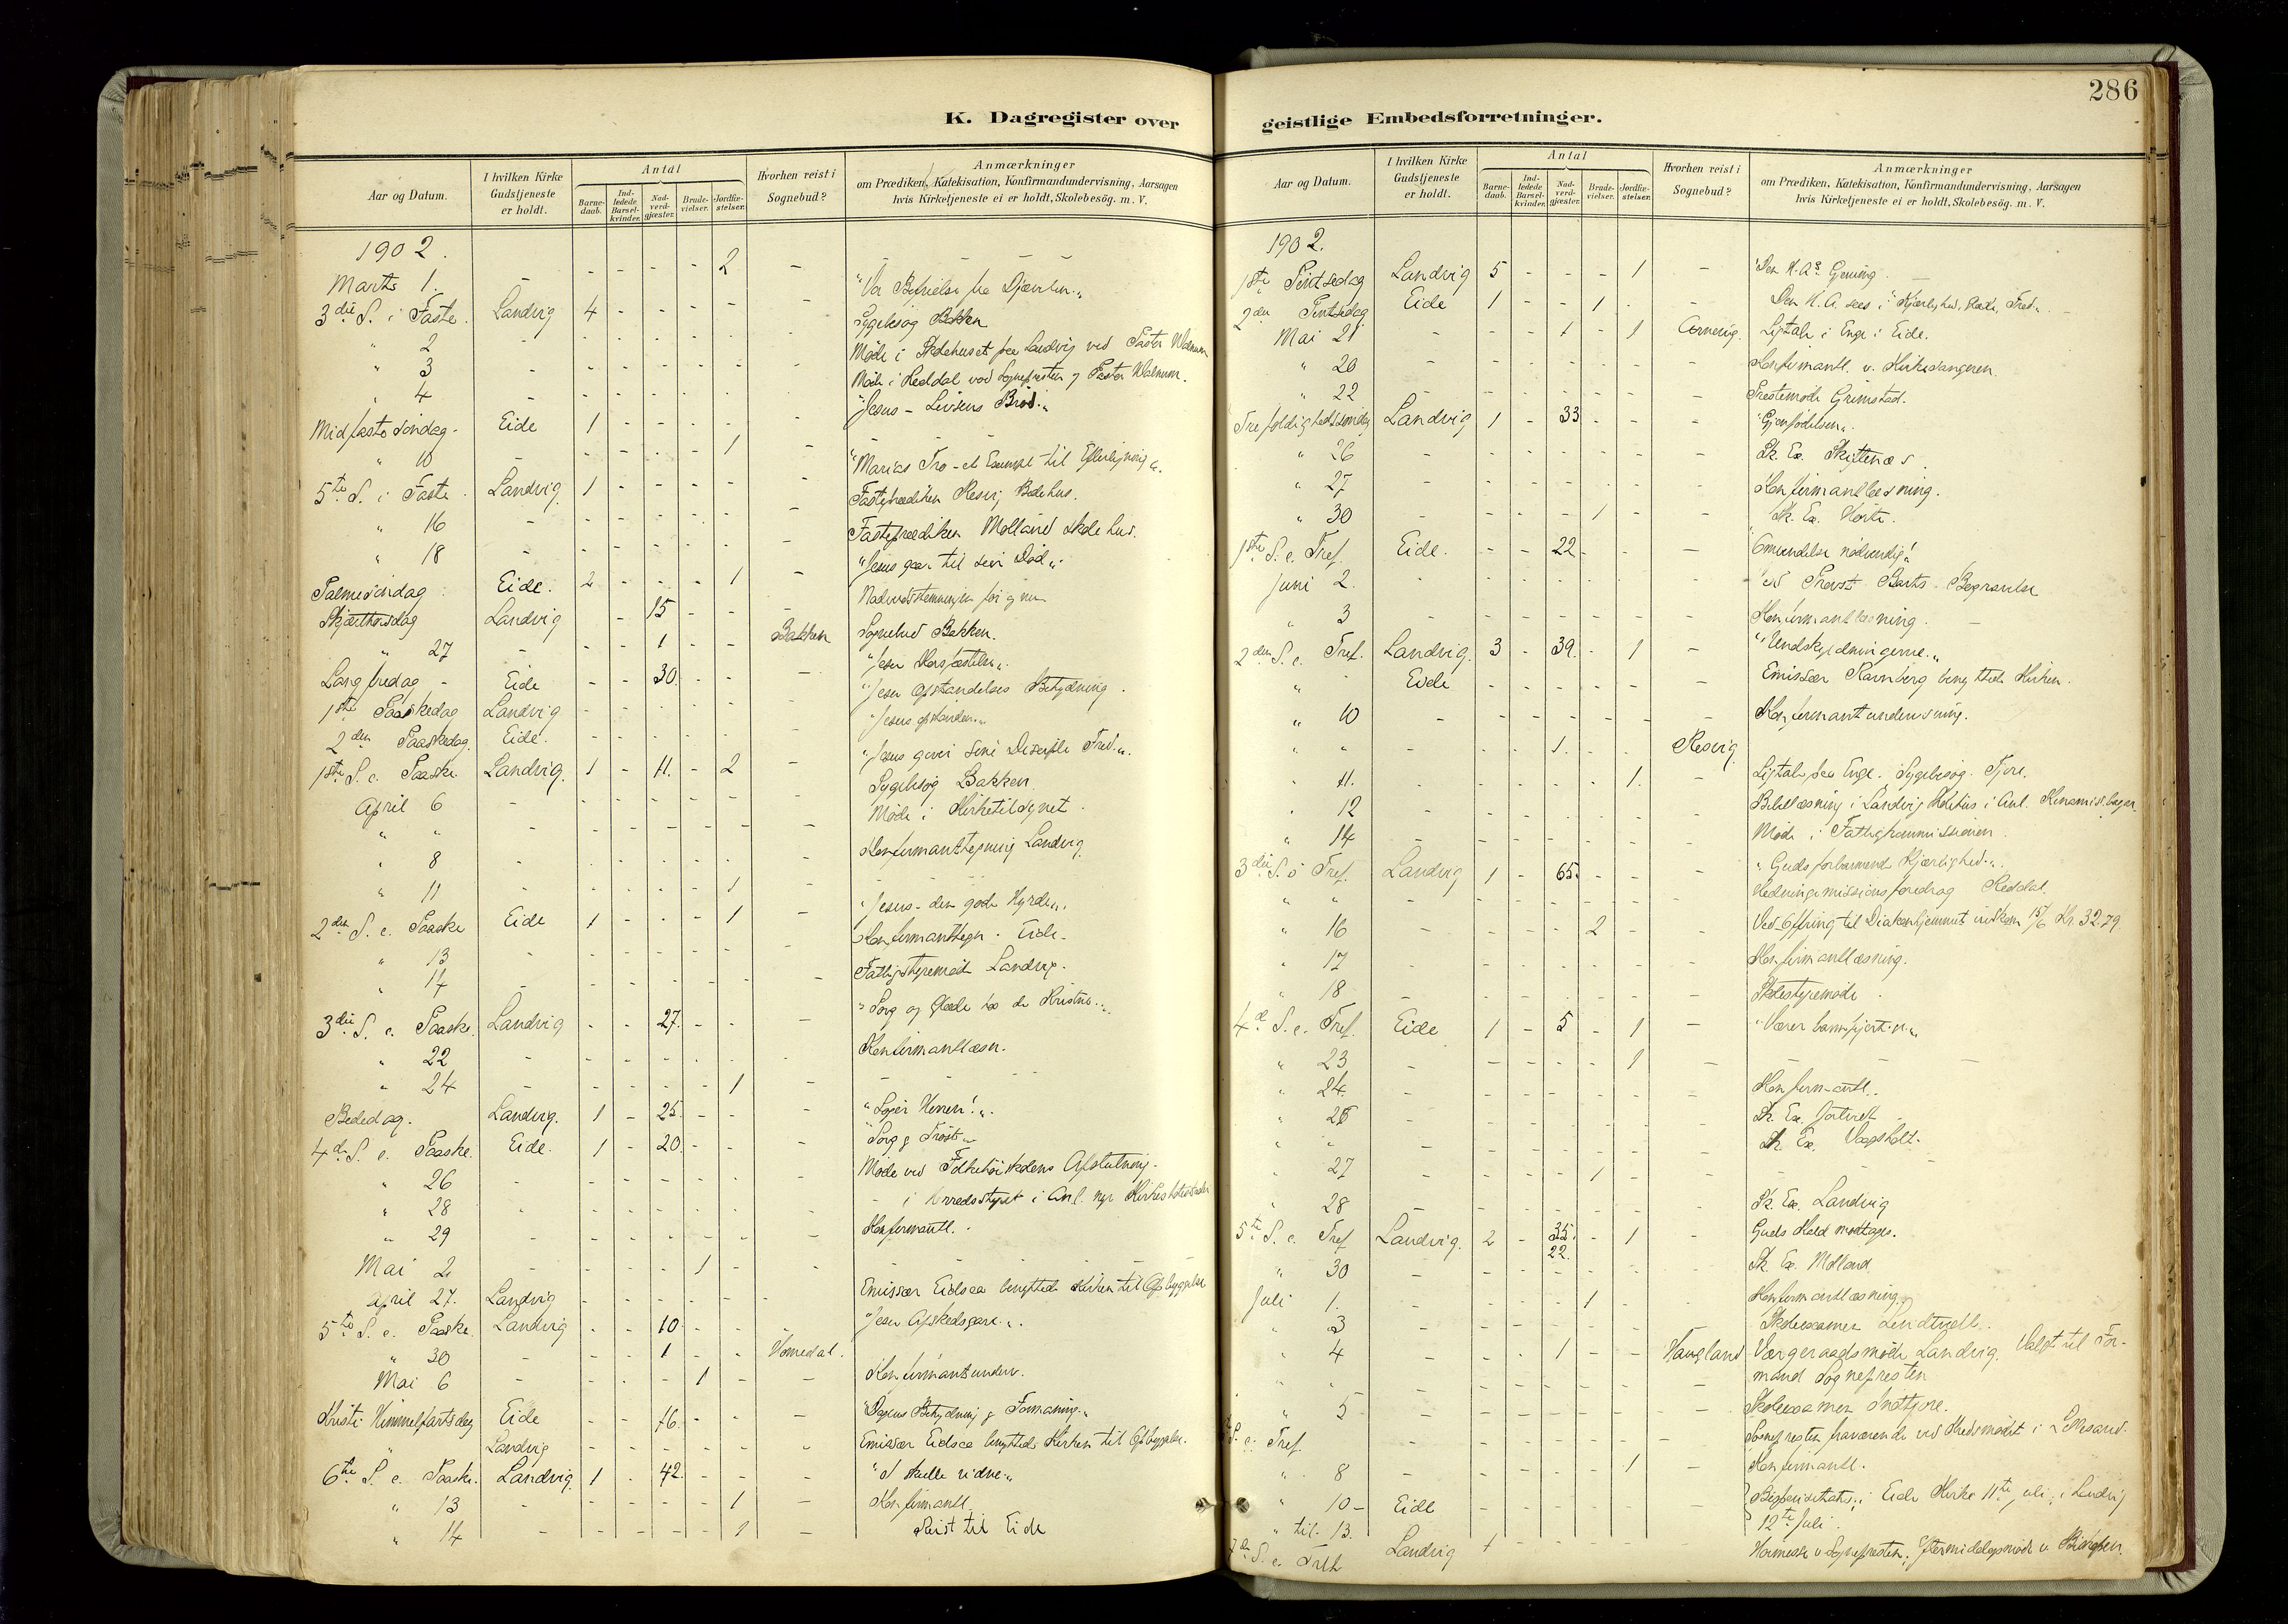 286
K. Dagregister over geistlige Embedsforretninger.
Aar og Datum. I hvilken Kirke Gudstjeneste er holdt. Antal Barnedaab. Indledede Barselkvinder. Nadverdgjæster. Brudevielser. Jordfæstelser. Hvorhen reist i Sognebud? Anmærkninger om Prædiken, Katekisation, Konfirmandundervisning, Aarsagen hvis Kirketjeneste ei er holdt, Skolebesøg. m. V.
1902.
Marts 1. - - - - - 2 - - - -
3die S. i Faste. Landvig 4 - - - - - "Vor Befrielse fra Djævelen."
" 2 - - - - - - - Sygebesøg Bakken
" 3 - - - - - - - Møde i Skolehuset paa Landvig ved Pastor Walnum
" 4 - - - - - - - Møde i Reddal ved Sognepresten og Pastor Walnum.
Midfaste Søndag. Eide 1 - - - - - "Jesus - Livsens Brød."
" 10 - - - - - 1 - -
5te S. i Faste. Landvig 1 - - - - - "Marias Tro - et Exempel til Efterligning".
" 16 - - - - - - - Fasteprædiken Resvig Bedehus.
" 18 - - - - - - - Fasteprædiken Molland Skolehus.
Palmesøndag Eide. 2 - - - 1 - "Jesus gaar til sin Død".
Skjærthorsdag Landvig - - 15 - - - Nadverdstemningen før og nu
" 27 - - - 1 - - Bakken Sognebud Bakken.
Langfredag - Eide - - 30. - - - "Jesu Korsfæstelse".
1ste Paaskedag Landvig - - - - - - "Jesu Opstandelses Betydning.
2den Paaskedag. Eide. - - - - - - "Jesus opstanden."
1ste S. e. Paaske Landvig. 1 - 11. - 2 - "Jesus giver sine Disciple Fred."
April 6 - - - - - - - Sygebesøg Bakken.
" " - - - - - - - Møde i Kirketilsynet.
" 8 - - - - - - - Konfirmanttegning Landvig.
" 11 - - - - - 1 - -
2den S. e. Paaske Eide 1 - - - 1 - "Jesus - den gode Hyrde".
" 13 - - - - - - - Konfirmanttegn. Eide.
" 14 - - - - - - - Fattigstyremøde Landvig.
3die S. e. Paaske. Landvig - - 27. - - - "Sorg og Glæde hos de Kristne."
" 22 - - - - - - - Konfirmantlæsn.
" 24 - - - - - 1 - -
Bededag. Landvig. 1 - 25. - - - "Søger Herren!".
4de S. e. Paaske. Eide. 1 - 20. - - - "Sorg og Trøst"
" 26 - - - - - - - Møde ved Folkehøiskolens Afslutning.
" 28 - - - - - - - - i Herredsstyret i Anl. nye
" 29 - - - - - - - Konfirmantl.
Mai 2 - - - - 1 - - -
April 27. Landvig - - - - - - Emissær Eidsaa benyttede Kirken til Opbyggelse
5te S. e. Paaske. Landvig - - 10. - - - "Jesu Afskedsgave".
" 30 - - - 1 - - Homedal.
Mai 6 - - - - 1 - - Konfirmantunderv.
Kristi Himmelfartsdag Eide - - 16. - - - "Dagens Betydning og Formaning."
" Landvig - - - - - - Emissær Eidsaa benyttede Kirken til Opbyggelse.
6te S. e. Paaske. Landvig. 1 - 42. - - - "I skulle vidne."
" 13 - - - - - 1 - Konfirmantl.
" 14 - - - - - 1 - Reist til Eide
Aar og Datum. I hvilken Kirke Gudstjeneste er holdt. Antal Barnedaab. Indledede Barselkvinder. Nadverdgjæster. Brudevielser. Jordfæstelser. Hvorhen reist i Sognebud? Anmærkninger om Prædiken, Katekisation, Konfirmandundervisning, Aarsagen hvis Kirketjeneste ei er holdt, Skolebesøg. m. V.
1902.
1ste Pintsedag Landvig 5 - - - 1 - "Den H. A's Gjerning.
2den Pintsedag Eide 1 - - 1 - - Den H. A. sees i "Kjærlighed, Fred".
Mai 21 - - - 1 - 1 Ligtale i Enge i Eide.
" 20 - - - - - - - Konfirmantl. v. Kirkesangeren.
" 22 - - - - - - - Prestemøde Grimstad.
Trefoldighedssøndag Landvig 1 - 33 - - - "Gjenfødelsen".
" 26 - - - - - - - Sk. Ex. Skiftenæs.
" 27 - - - - - - - Konfirmantlæsning.
" 30 - - - - 1 - - Sk. Ex. Horte.
1ste S. e. Tref. Eide. - - 22 - - - Omvendelse nødvendig!
Juni 2. - - - - - - - Ved Provst Barths Begravelse
" 3 - - - - - - - Konfirmantlæsning.
2den S. e. Tref. Landvig. 3 - 39. - 1 - "Undskyldningerne."
" Eide - - - - - - Emissær benyttede Kirken.
" 10 - - - - - - - Konfirmantundervisning.
" " - - - 1. - - Resvig.
" 11. - - - - - 1. - Ligtale paa Enge. Sygebesøg. Fjære.
" 12 - - - - - - - Bibellæsning i Landvig Skolehus i Anl.
" 14 - - - - - - - Møde i Fattigkommissionen.
3die S. e. Tref. Landvig 1 - 65. - - - "Guds forbarmende Kjærlighed."
" " - - - - - - - Hedningemissionsforedrag Reddal.
" 16 - - - - 2 - - Ved Ofring til Diakonhjemmet indkom 15/6 Kr. 32.79.
" 17 - - - - - - - Konfirmantlæsning.
" 18 - - - - - - - Skolestyremøde.
4de S. e. Tref. Eide 1 - 5 - 1 - "Værer barmhjertige".
" 23 - - - - - 1 - -
" 24. - - - - - - - Konfirmantl.
" 25 - - - - - - - Sk. Ex.
" " - - - - - - - Sk. Ex. Vagsholt.
" 27 - - - - 1 - - -
" 28 - - - - - - - Sk. Ex. Landvig
5te S. e. Tref. Landvig. 2 - 35. 22. - 1 - Guds Kald modtages.
" 30 - - - - - - - Sk. Ex. Molland
Juli 1. - - - - 1 - - Konfirmantlæsning.
" 3 - - - - - - - Skoleexamen Lindtveit.
" 4 - - - 1 - - Haugland Værgeraadsmøde Landvig. Valgt til For-
" " - - - - - - - mand Sognepresten
" 5 - - - - - - - Skoleexamen Indtjore.
S. e. Tref. - - - - - - - Sognepresten fraværende ved Kredsmødet i Lillesand.
" 8 - - - - - 1 - Konfirmantl.
" 10 - Eide Bispevisitats; i Eide Kirke 11te juli; i Landvig
" til 13. 12te Juli.
7de S. e. Tref. Landvig 1 - - - - - Høimesse v. Sognepresten; Eftermiddagsmøde v. Biskopen.